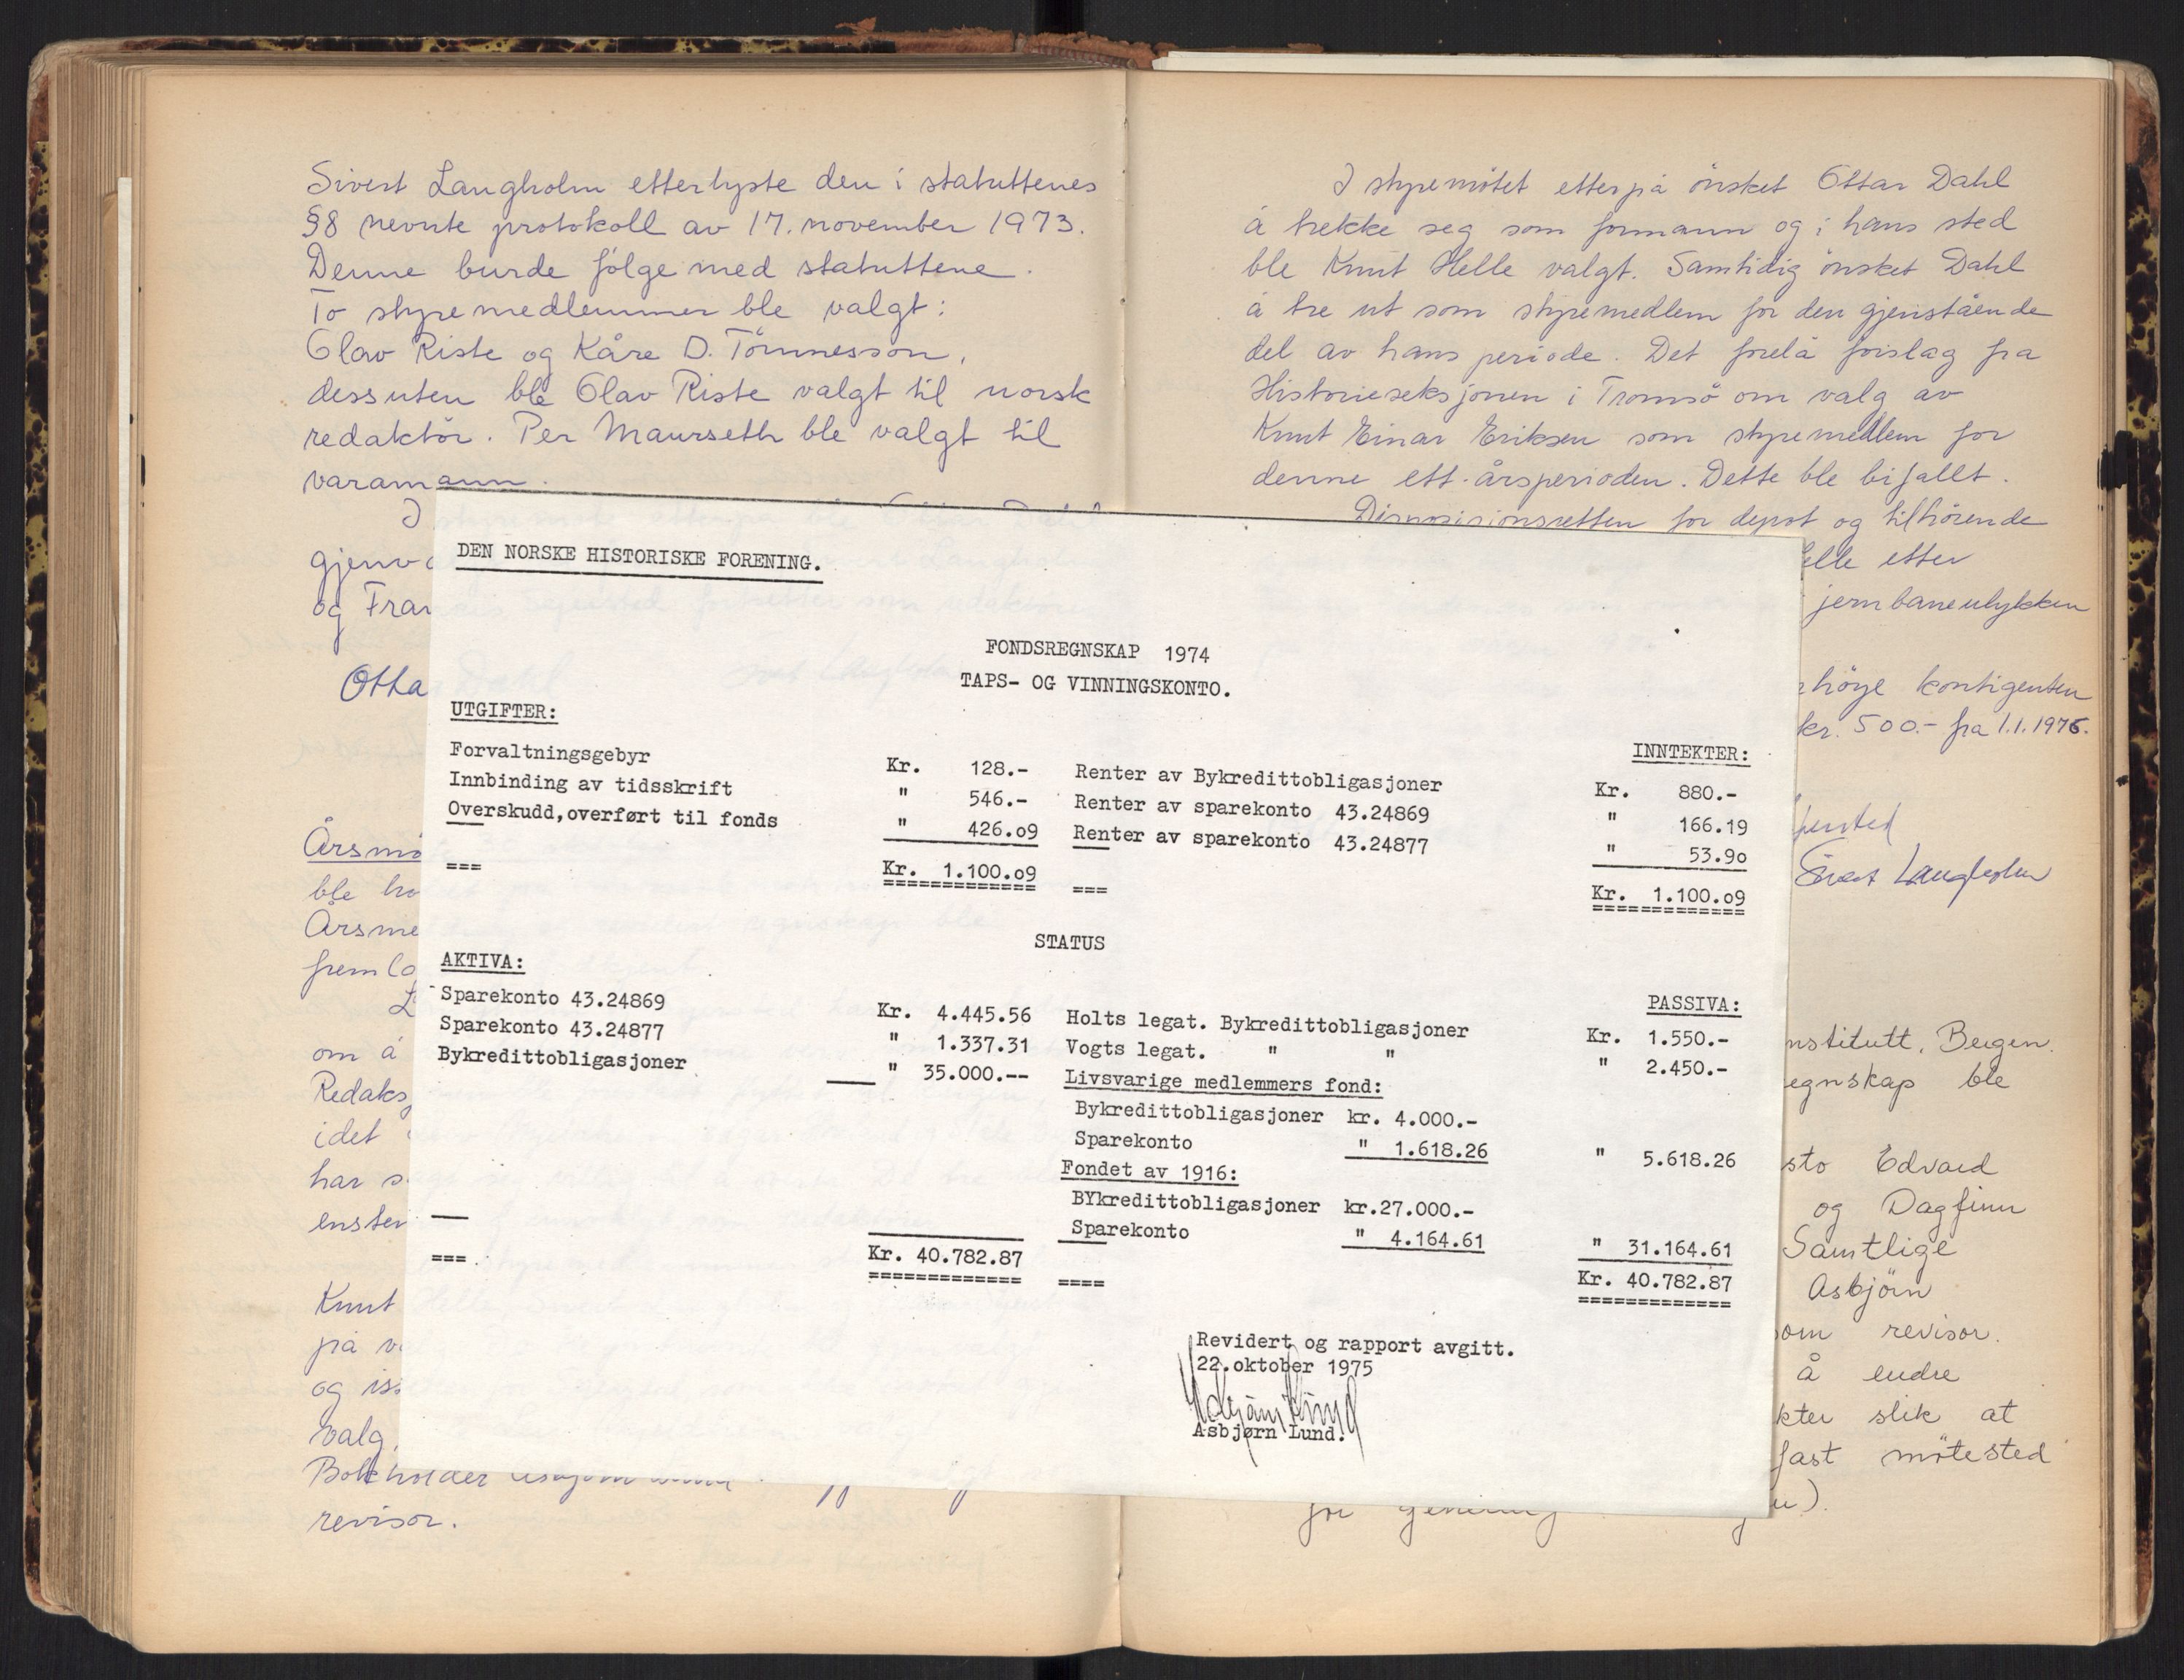 Sivert Langholm etterlyste den i statuttenes
§8 nevnte protokoll av 17. november 1973.
Denne burde følge med statuttene.
To styremedlemmer ble valgt:
Olav Riste og Kåre D. Tönnesson,
dessuten ble Olav Riste valgt til norsk
redaktör. Per Maurseth ble valgt til
varamann.
I
gjenv
og Fran
Otta
Årsmö
ble ho
Årsme
fremla
om å
Redaks
idet
har s
enstem
Knut
på v
og iss
Valg.
Bokholder Asbjørn Lund
revisor.
I styremötet etterpå önsket Ottar Dahl
å trekke seg som formann og i hans sted
ble Knut Helle valgt. Samtidig önsket Dahl
å tre ut som styremedlem for den gjenstående
del av hans periode. Det forelå forslag fra
Historieseksjonen i Tromsö om valg av
Knut Einar Eriksen som styremedlem for
denne ett-årsperioden. Dette ble bifallt.
Disposisjonsretten for depot og tilhörende
elle etter
jernbaneulykken
höye kontigenten
kr. 500.- fra 1.1.1976.
Sivert Langholm
nstitutt, Bergen.
egnskap ble
sto Edvard
og Dagfinn
Samtlige
Asbjörn
som revisor.
å endre
kter slik at
fast mötested
for
DEN NORSKE HISTORISKE FORENING.
FONDSREGNSKAP 1974
TAPS- OG VINNINGSKONTO.
UTGIFTER:
INNTEKTER:
Forvaltningsgebyr Kr. 128.- Renter av Bykredittobligasjoner Kr. 880.-
Innbinding av tidsskrift " 546.- Renter av sparekonto 43.24869 " 166.19
Overskudd,overført til fonds " 426.o9 Renter av sparekonto 43.24877 " 53.9o
=== Kr. 1.100.o9 === Kr. 1.100.o9
STATUS
AKTIVA:
PASSIVA:
Sparekonto 43.24869 Kr. 4.445.56 Holts legat. Bykredittobligasjoner Kr. 1.550.-
Sparekonto 43.24877 " 1.337.31 Vogts legat. " " " 2.450.-
Bykredittobligasjoner " 35.000.-- Livsvarige medlemmers fond:
Bykredittobligasjoner kr. 4.000.-
Sparekonto " 1.618.26 " 5.618.26
Fondet av 1916:
BYkredittobligasjoner kr.27.000.-
Sparekonto " 4.164.61 " 31.164.61
=== Kr. 40.782.87 ==== Kr. 40.782.87
Revidert og rapport avgitt.
22.oktober 1975
Asbjørn Lund
Asbjørn Lund.